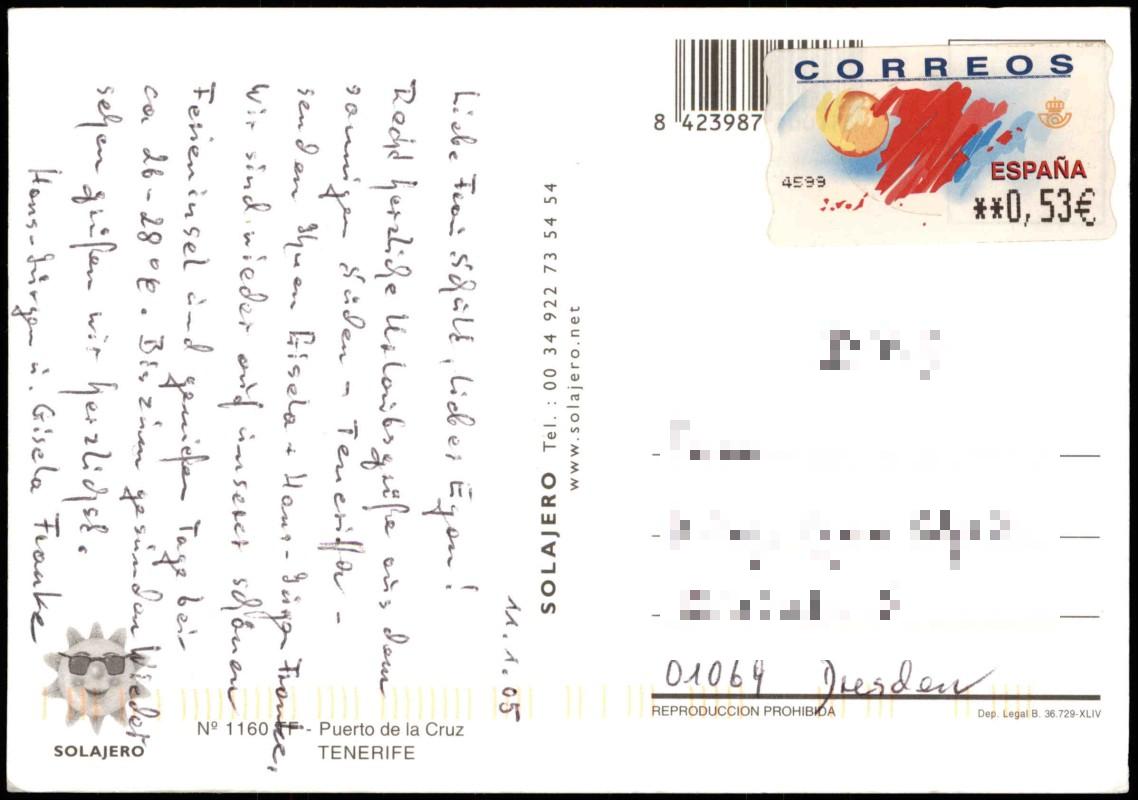 11.1.05
Liebe Frau Schütt, lieber Egon!
Recht herzliche Urlaubsgrüße aus dem
sonnigen Süden – Teneriffa –
senden Ihnen Gisela + Hans-Jürgen Franke,
wir sind wieder auf unserer schönen
Ferieninsel und genießen Tage bei
ca 26-28°C. Bis zum gesunden Wieder
sehen grüßen wir herzlichst.
Hans-Jürgen u. Gisela Franke
SOLAJERO Tel.: 00 34 922 73 54 54
www.solajero.net
SOLAJERO
Nº 1160 - Puerto de la Cruz
TENERIFE
8 423987
CORREOS
ESPAÑA
4599
**0,53€
01064 Dresden
REPRODUCCION PROHIBIDA
Dep. Legal B. 36.729-XLIV